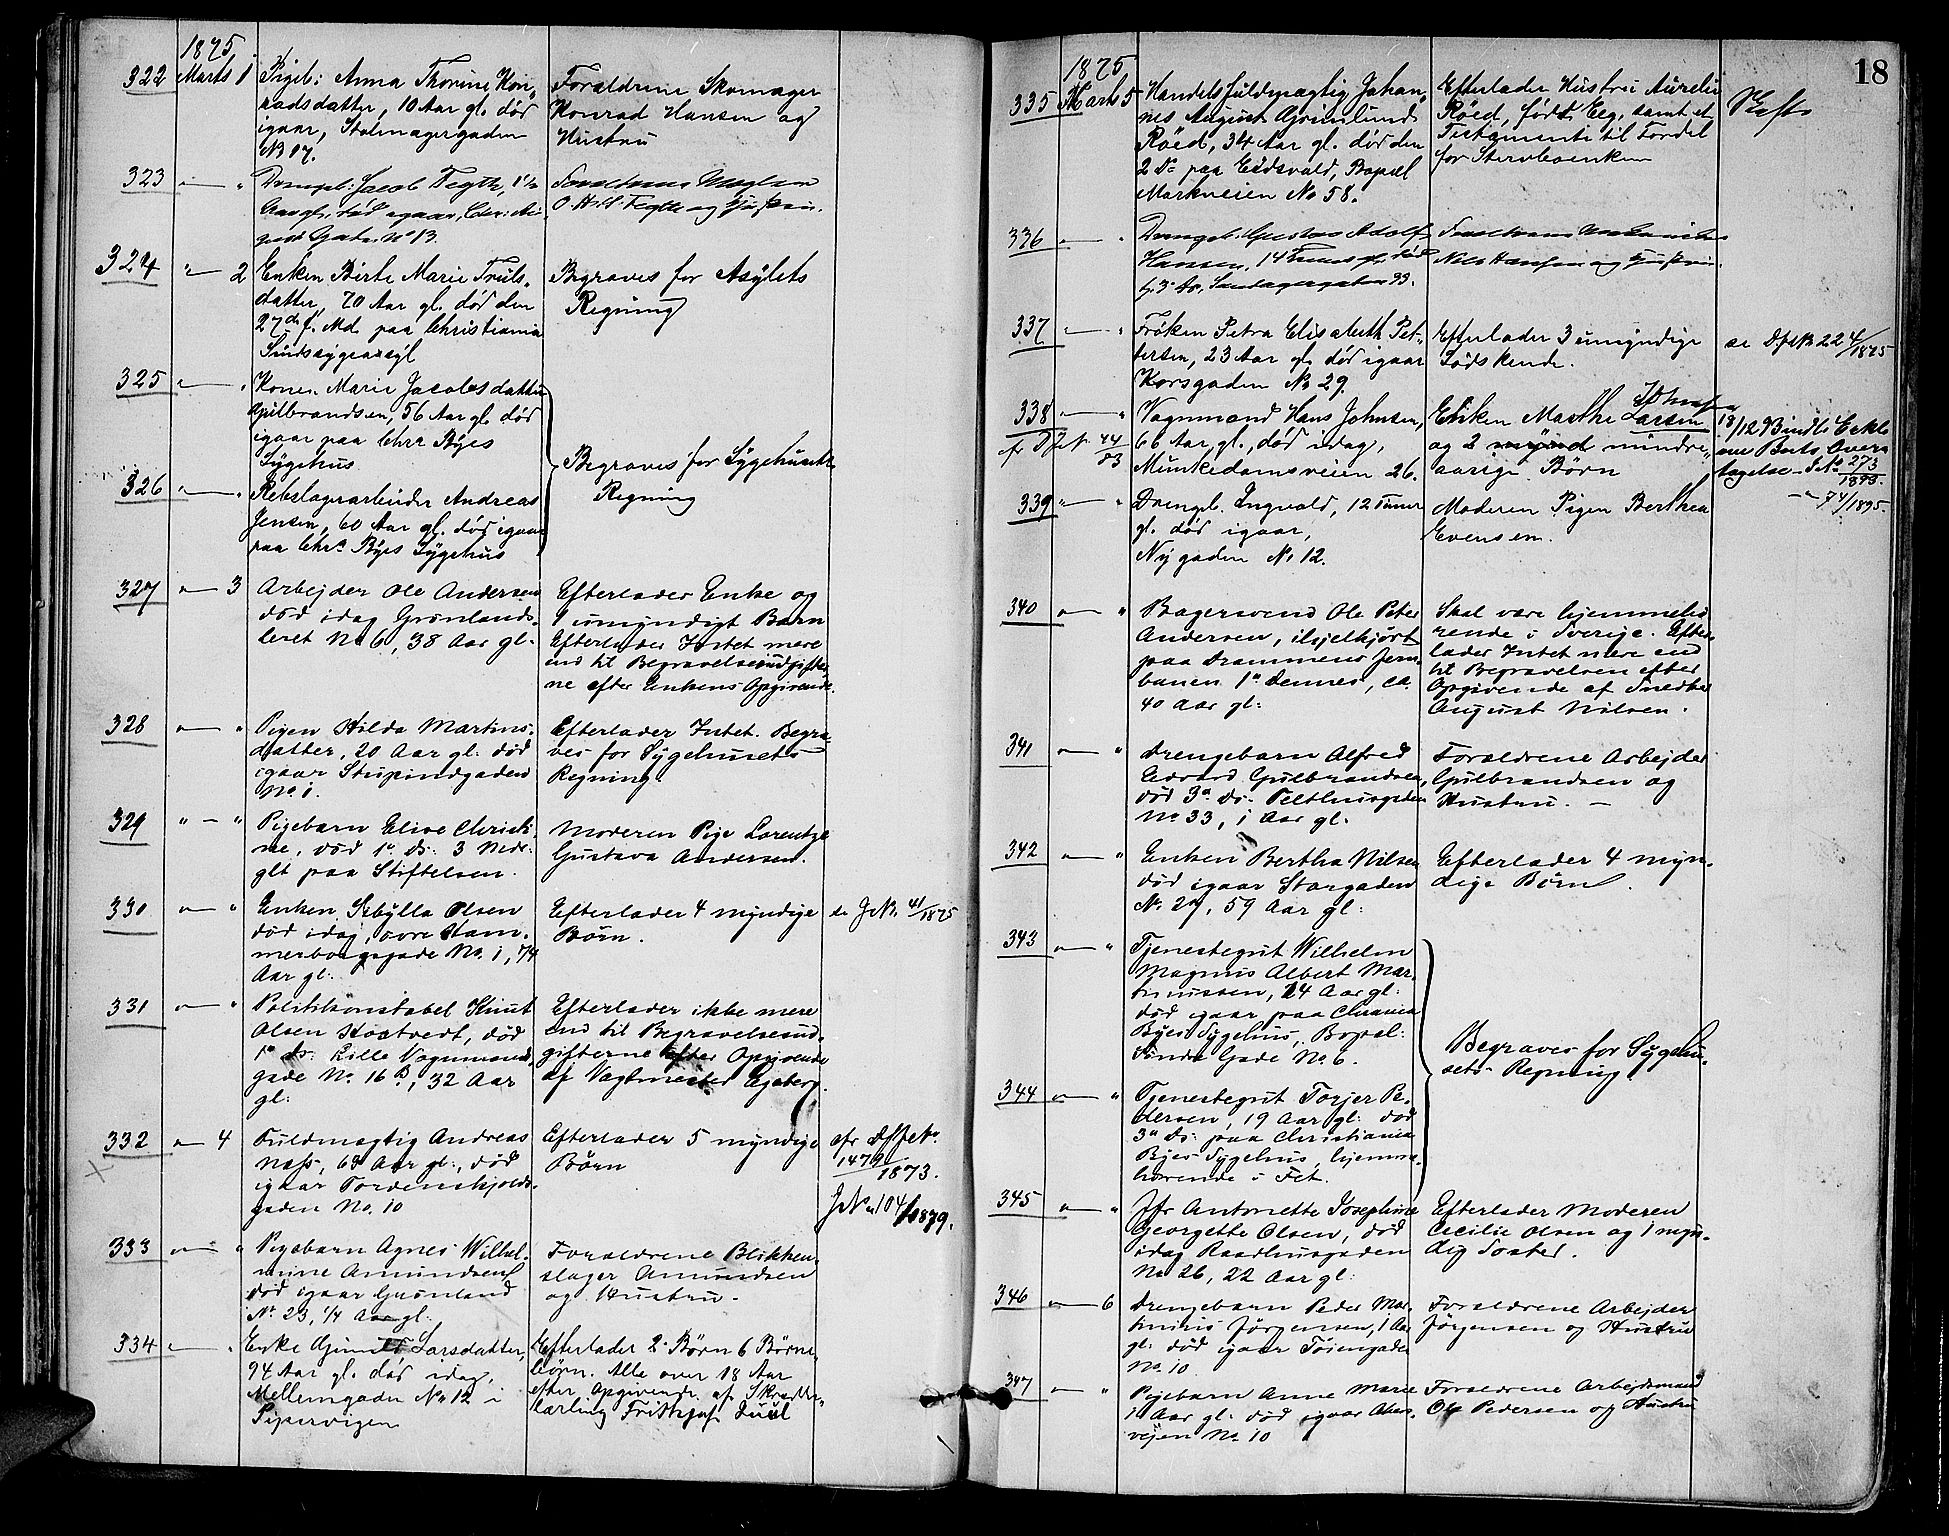 1875
322 Marts 1 Pigeb: Anna Thorine Kon-
radsdatter, 10 Aar gl. død
igaar, Stolmagergaden
No 17.
Forældrene Skomager
Konrad Hansen og
Hustru
323 " — " Drengeb: Jacob Tegth,
Aar gl. død igaar,
Gade No 13.
Forældrene
og Hustru.
324 " — 2 Enken Birte Marie Truls-
datter, 70 Aar gl. død den
27de f. Md. paa Christiania
Sindssygeasyl
Begraves for Asylets
Regning
325 " — " Konen Marie Jacobsdatter
Gulbrandsen, 56 Aar gl. død
igaar paa Chra Byes
Sygehus
Begraves for Sygehusets
Regning
326 " — " Rebslagerarbeider Andreas
Jensen, 60 Aar gl. død igaar
paa Chra Byes Sygehus
327 " — 3 Arbejder Ole Andersen
død idag Grønlands-
leret No 6, 38 Aar gl.
Efterlader Enke og
1 umyndigt Barn
Efterlader Intet mere
end til Begravelsesudgifter-
ne efter Enkens Opgivende.
328 " — " Pigen Hilda Martins-
datter, 20 Aar gl: død
igaar Stupindgaden
No 1.
Efterlader Intet. Begra-
ves for Sygehusets
Regning.
329 " — " Pigebarn Elise Christi-
ne, død 1ste ds: 3 Mdr:
glt paa Stiftelsen.
Moderen Pige Lorentze
Gustava Andersen.
330 " — " Enken Sibylla Olsen
død idag, øvre Ham-
mersborggade No. 1, 74
Aar gl:
Efterlader 4 myndige
Børn.
se J No. 41/1875
331 " — " Politikonstabel Knut
Olsen Hostvedt, død
1ste ds: Lille Vognmands-
gade No. 16 B, 32 Aar
gl:
Efterlader ikke mere
end til Begravelsesud-
gifterne efter Opgivende
af Vagtmester Egeberg.
332 " — 4 Fuldmægtig Andreas
Næss, Aar gl:, død
igaar Tordenskjolds-
gaden No. 10
Efterlader 5 myndige
Børn
cfr
1479/1873.
J No 104/1879.
333 " — " Pigebarn Agnes Wilhel-
mine Amundsen
død igaar Grønland
No 23, 1/4 Aar gl.
Forældrene Blikken-
slager Amundsen
og Hustru.
334 " — " Enke Larsdatter,
94 Aar gl. død idag,
Mellemgaden No 12 i
Pipervigen
Efterlader 2 Børn 6 Børne-
børn. Alle over 18 Aar
efter Opgivende af Skrædder-
lærling Frithjof Juul
18
1875
335 Marts 5 Handelsfuldmægtig Johan-
nes August Grønlund
Røed, 34 Aar gl. død den
2 ds paa Eidsvold, Bopæl
Markveien No 58.
Efterlader Hustru Aurelie
Røed, født Eeg, samt et
Testamente til Fordel
for Sterboenken
336 " — " Drengeb. Gustav Adolf
Hansen, 14 gl. død
No 33.
Forældrene
Nils Hansen og Hustru.
337 " — " Frøken Petra Elisabeth Pet-
tersen, 23 Aar gl. død igaar
Korsgaden No 29.
Efterlader 3 umyndige
Sødskende.
se 224/1875
338 " — " Vognmand Hans Johnsen,
66 Aar gl., død idag,
Munkedamsveien 26.
44/83
Enken Marthe Larsen
og 2 mynd mindre-
aarige Børn
18/12 93
273/1893.
— " 74/1895.
339 " — " Drengeb. Ingvald, 12 Timer
gl. død igaar,
Nygaden No 12.
Moderen Pigen Berthea
Evensen.
340 " — " Bagersvend Ole Peter
Andersen, ihjelkjørt
paa Drammens Jern-
banen 1ste dennes, ca.
40 Aar gl:
Skal være hjemmehø-
rende i Sverige. Efter-
lader Intet mere end
til Begravelsen efter
Opgivende af Snedker
August Nilsen.
341 " — " Drengebarn Alfred
Edvard Gulbrandsen,
død 3de ds. Telthusgaden
No 33, 1 Aar gl.
Forældrene Arbejder
Gulbrandsen og
Hustru. —
342 " — " Enken Bertha Nilsen
død igaar Storgaden
No. 27, 59 Aar gl:
Efterlader 4 myn-
dige Børn.
343 " — " Tjenestegut Wilhelm
Magnus Albert Mar-
tinussen, 14 Aar gl:
død igaar paa Chrania
Byes Sygehus, Bopæl:
Gade No. 6.
Begraves for Sygehu-
sets Regning.
344 " — " Tjenestegut Torjer Pe-
dersen, 19 Aar gl: død
3de ds: paa Christiania
Byes Sygehus, hjemme-
hørende i Fet.
345 " — " Jfr Antonette Josephine
Georgette Olsen, død
idag Raadhusgaden
No 26, 22 Aar gl:
Efterlader Moderen
Cecilie Olsen og 1 myn-
dig Søster.
346 " — 6 Drengebarn Peder Mar-
tinius Jørgensen, 1 Aar
gl: død igaar Tøiengaden
No. 10
Forældrene Arbejder
Jørgensen og Hustru
347 " — " Pigebarn Anne Marie
1 Aar gl: død igaar Akers-
vejen No. 10
Forældrene Arbejdsmand
Ole Pedersen og Hustru